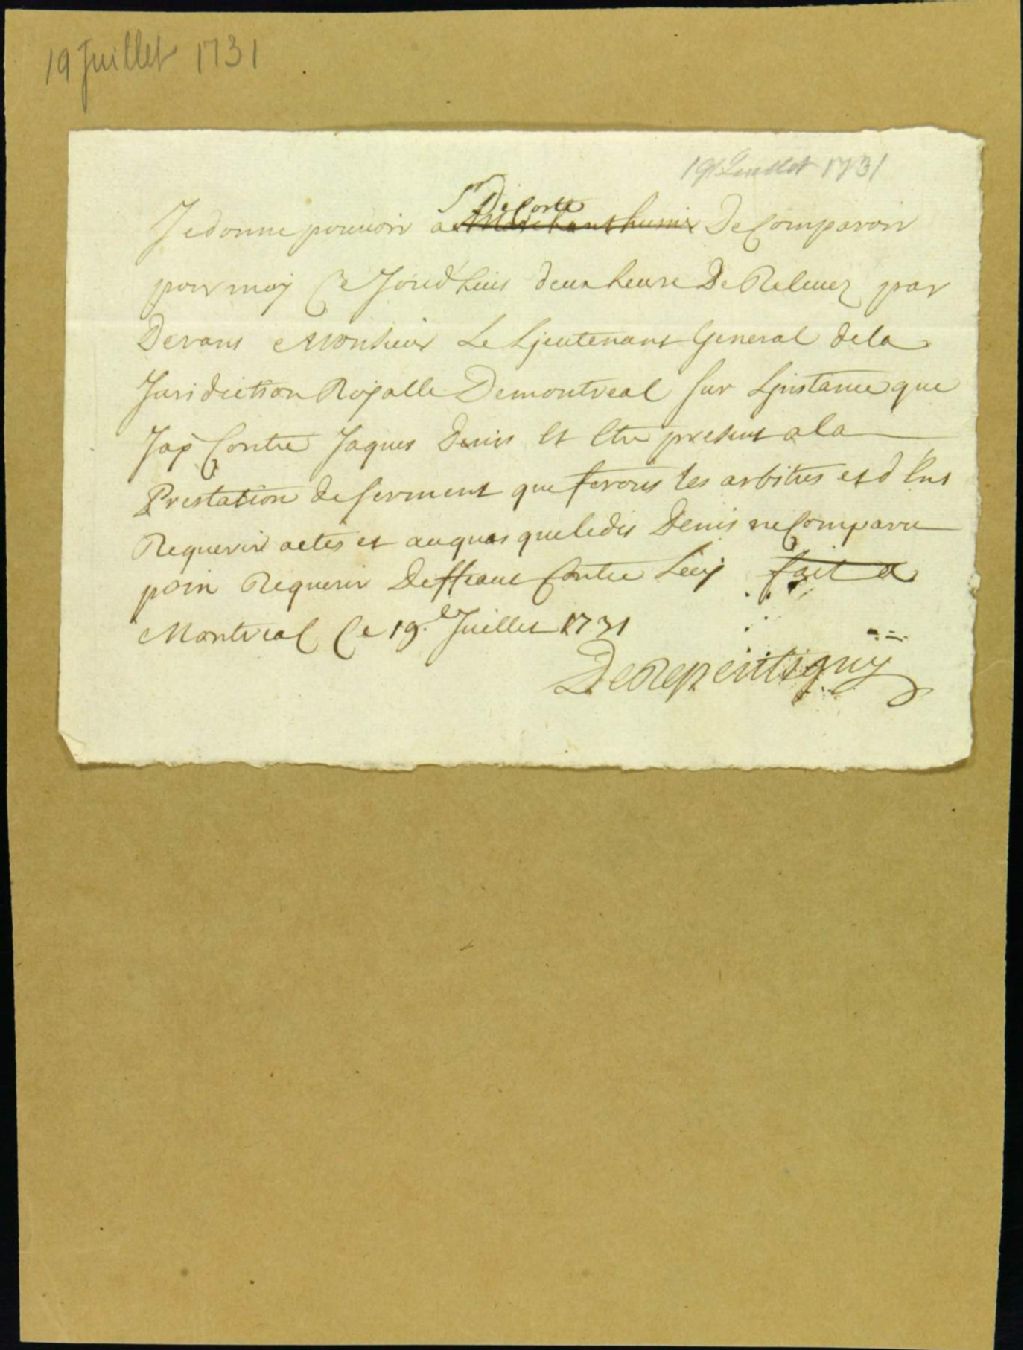 19 Juillet 1731
19 Juillet 1731
Sr DeCoste
Je donne pouvoir a DeComparoir
pour moy Ce Jourdhuis deux heure De Relevez par
Devans Monsieur Le Ljeutenant General dela
Juridiction Royalle Demontreal sur Ljnstance que
Jay Contre Jaques Denis Et Etre present a la
Prestation de serment que ferons les arbitres et d'Ens
Requerir actes et auquas queledis Denis neComparu
poin Requerir Deffeaut Contre Luy fait a
Montreal Ce 19.e Juillet 1731
DeRepentigny